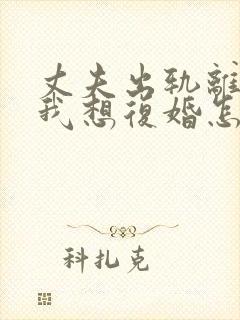 丈夫出轨離
我想復婚怎
科扎克